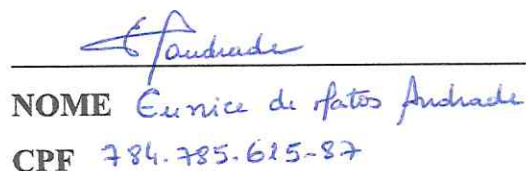 EAndrade
NOME Eunice de Matos Andrade
CPF 784.785.615-87